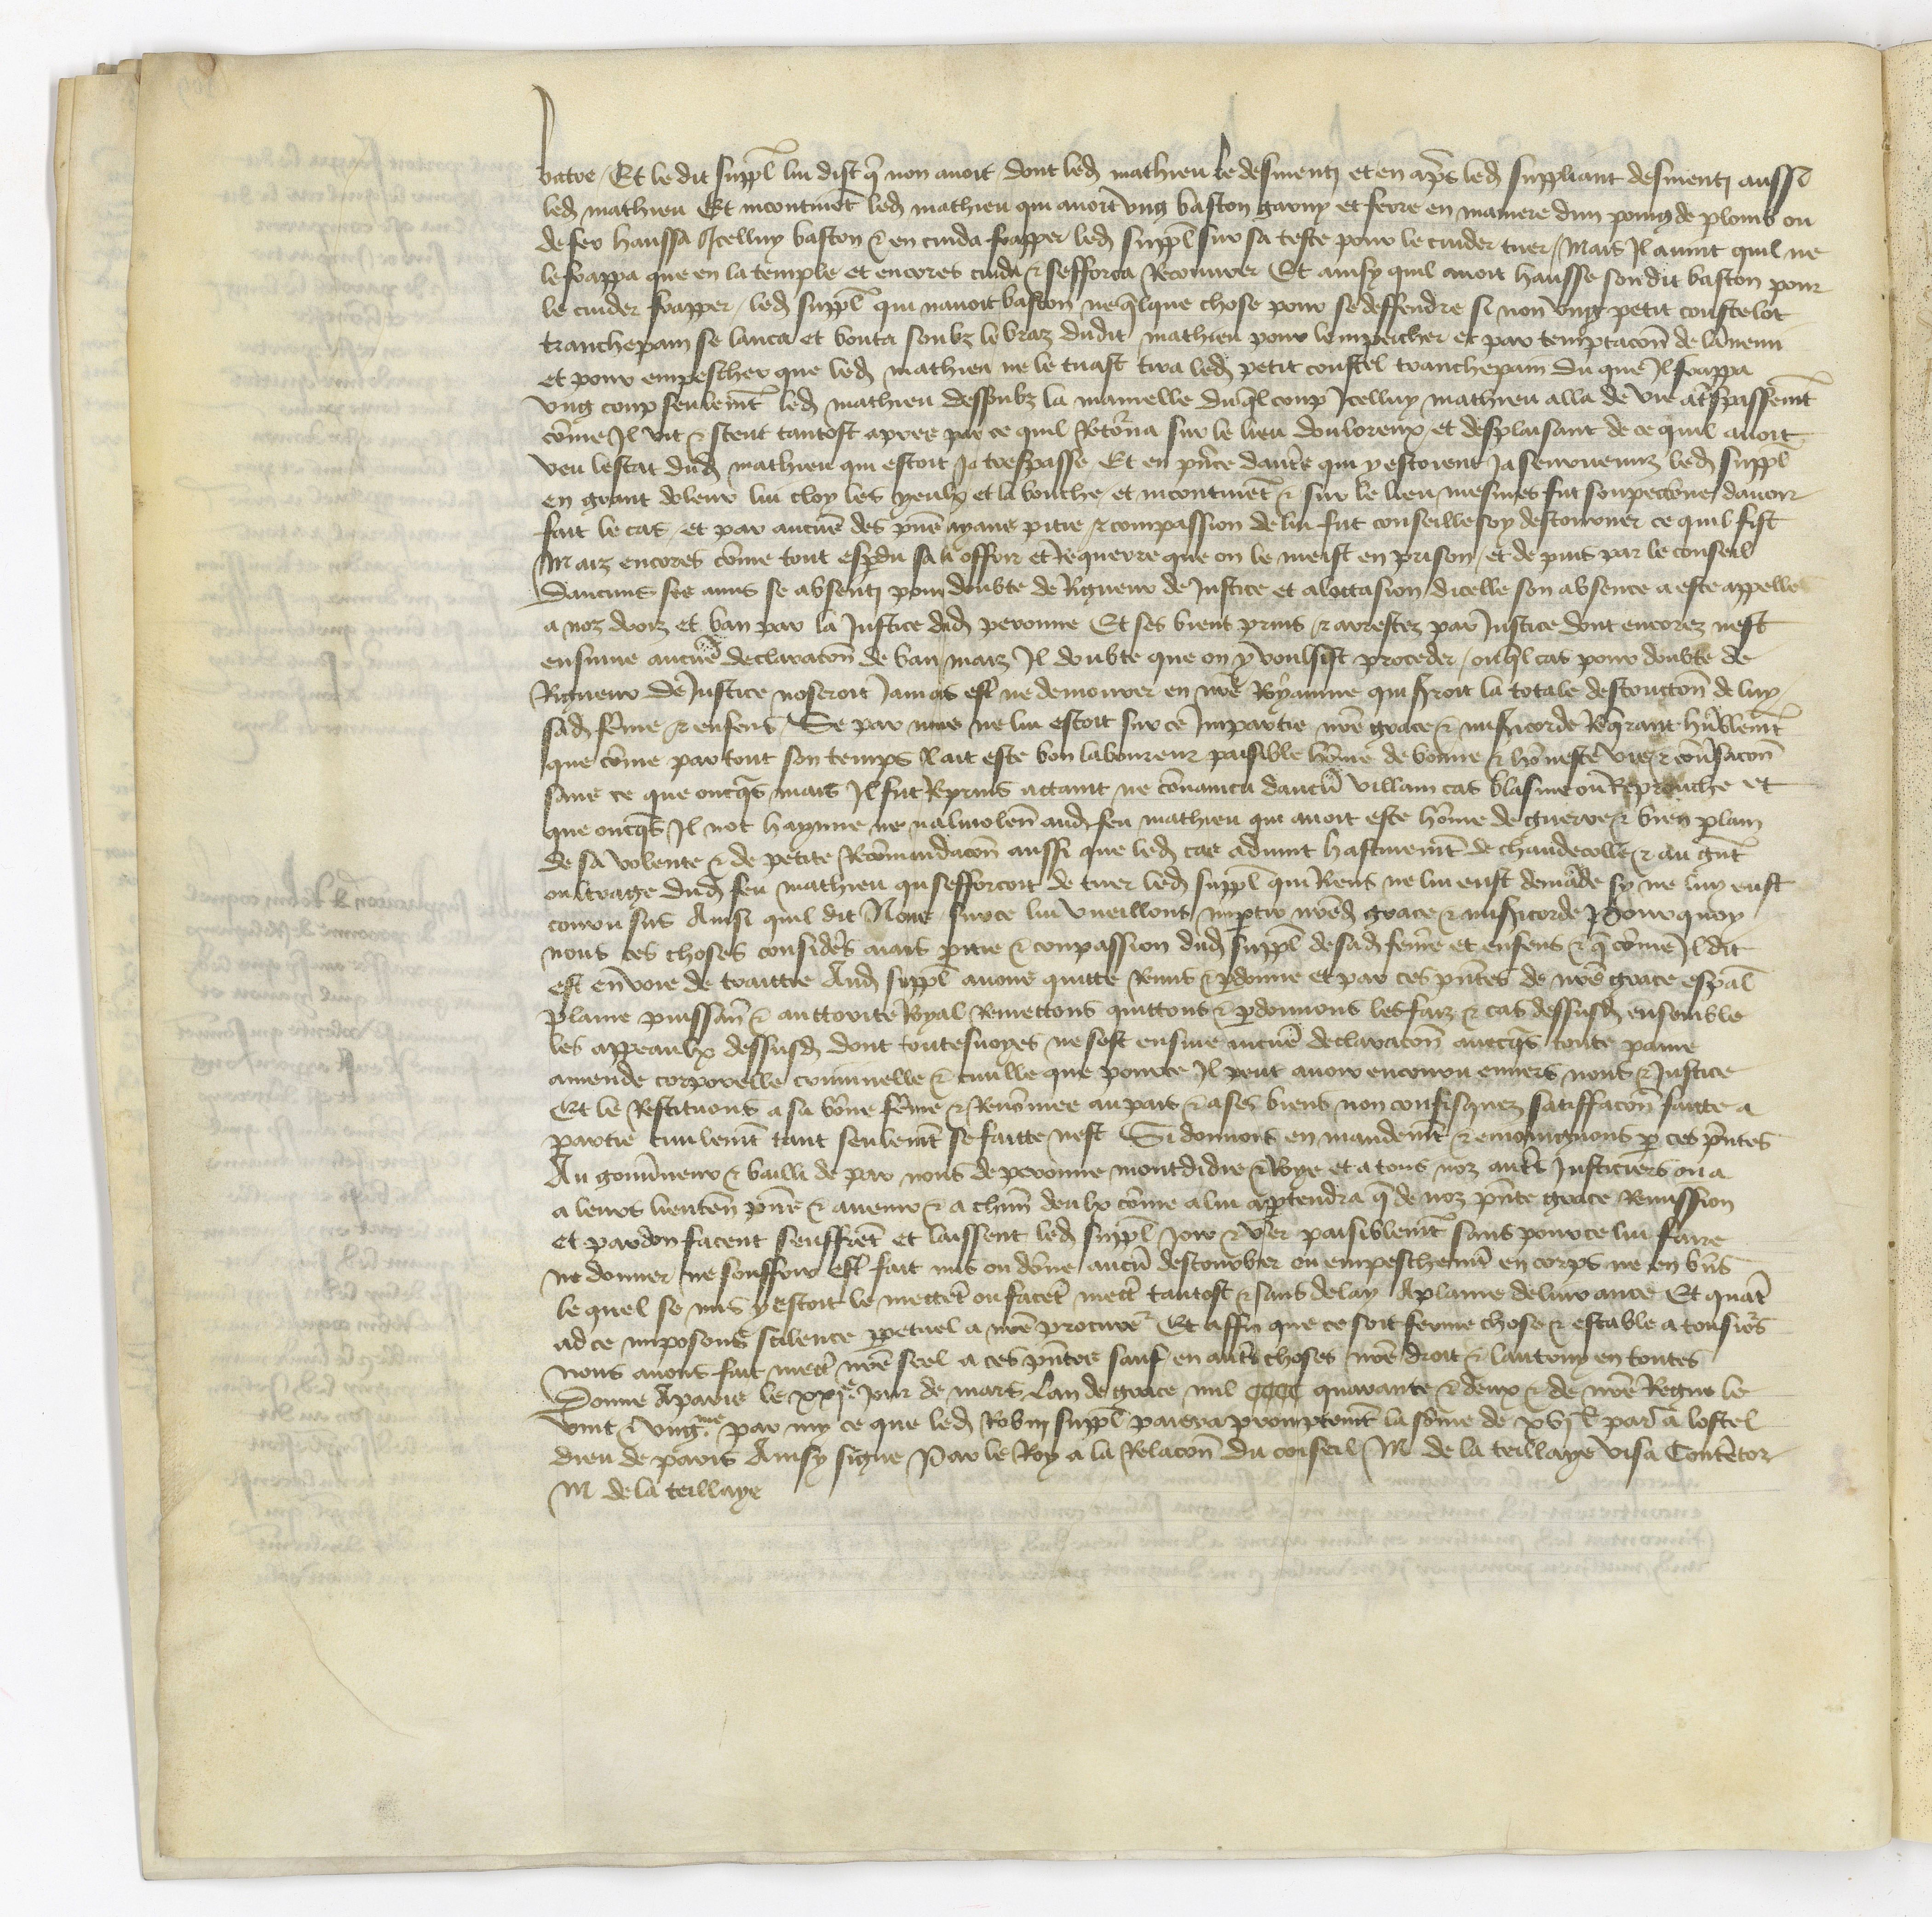 batre / Et le dit suppl lui dist q̄ non avoit dont led mathieu le desmenti et en apr̄s led suppliant desmenti aussi
led mathieu Et incontinēt led mathieu qui avoit ung baston garny et ferre en maniere dun poing de plonb ou
de fer haussa Icelluy baston & en cuida frapper led suppl sur sa teste pour le cuider tuer / Mais Il avint quil ne
le frappa que en la temple et encores cuida & sefforca Recouvrer Et ainsy quil avoit hausse son dit baston pour
le cuider frapper / led suppl qui navoit baston ne q̄lque chose pour se deffendre si non ung petit coustelot
tranchepain se lanca et bouta soubz le braz dudit mathieu pour lempescher et par temptacōn de lānemi
et pour empescher que led mathieu ne le tuast tira led petit coustel tranchepain du quel Il frappa
ung coup seulemēt led mathieu dessoubz la mamelle duq̄l coup Icelluy mathieu alla de vie a trespassemēt
cōme Il vit & sceut tantost apres par ce quil Retōrna sur le lieu douloreux et desplaisant de ce quil avoit
veu lestat dud mathieu qui estoit Ja trespasse Et en pn̄ce dautrē qui y estoient Ja seurvenuz led suppl
en grant doleur lui cloy les yeulx et la bouche / et incontinēt & sur le lieu mesmes fut soupeconne davoir
fait le cas / et par aucuns des pn̄s ayans pitie & compassion de lui fut conseille soy destourner ce quil fist
Maiz encores cōme tout esperdu sala offrir et Requerre que on le meist en prison / et depuis par le conseil
Daucuns ses amis se absenti pour doubte de Rigueur de Justice et a loccasion dicelle son absence a este appelle
a noz droiz et ban par la Justice dud peronne Et ses biens prins & arrestez par Justice dont encorez nest
ensuivie aucune declaracōn de ban / maiz Il doubte que on y voulsist proceder / ouq̄l cas pour doubte de
Rigueur de Justice noseroit Jamais est̄ ne demourer en nrē Royaume qui seroit la totale destructōn de luy /
sad fēme & enfens / Se par nous ne lui estoit sur ce Impartie nrē grace & misericorde Req̄rant hūblemēt
que cōme par tout son temps Il ait este bon laboureur paisible hōme de bonne & hōneste vie & conv̄sacōn
sans ce que oncq̄s mais Il fut Reprins actaint ne cōvaincu daucū villain cas blasme ou Reprouche et
que oncq̄s Il not haynne ne malivolen̄ aud feu mathieu qui avoit este hōme de guerre & bien plain
de sa volente & de petite Recōmandacōn aussi que led cas advint hastivemēt de chaudecolle & au grāt
oultrage dud feu mathieu qui sefforcoit de tuer led suppl qui Riens ne lui eust demāde sy ne luy eust
couru sus Ainsi quil dit Nous sur ce lui vueillons imp̄tir nrēd grace & misericorde Pour quoy
nous ces choses considērs aians pitie & conpassion dud suppl de sad femē et enfens & q̄ cōme Il dit
est en voie de traittie Aud suppl avons quitte Remis & p̄donne et par ces pn̄tes de nrē grace esp̄al
plaine puissan̄ & auctorite Royal Remettons quittons & p̄donnons les faiz & cas dessusd ensemble
les appeaulx dessusd dont toutesvoyes ne sest ensuie aucunē declaracōn avecq̄s toute paine
amende corporelle criminelle & civille que pource Il peut avoir encouru envers nous & Justice
Et le Restituons a sa bōne fēme & Renōmee au pais & a ses biens non confisquez satisffacōn faitte a
partie civilemēt tant seulemēt se faitte nest Si donnons en mandemēt & enioingnons p̄ ces pn̄tes
Au gouv̄neur & bailli de par nous de peronne mondidier & Roye et a tous noz autrēs Justiciers ou a
a leurs lieuten̄ pn̄s & avenir & a chūn deulx cōme a lui app̄tendra q̄ de noz pn̄te grace Remission
et pardon facent seuffrēt et laissent led suppl joir & us̄er paisiblemēt sans pource lui faire
ne donner ne souffrir est̄ fait mis ou dōne aucū destourbier ou empeschemēt en corps ne en biēs
le quel se mis y estoit le mettēt ou facēt mectr̄ tantost & sans delay A plaine delivrance Et quāt
ad ce imposons scilence pp̄etuel a nrē procur̄ Et affin que ce soit ferme chose & estable a tousiōrs
nous avons fait mectr̄ nrē seel a ces pn̄tes sauf en autrēs choses nrē droit & lautruy en toutes
Donne A paris le xxje Jour de mars Lan de grace mil cccc quarante & deux & de nrē Regne le
vint & ung.me par my ce que led Robin suppl paiera promptemēt la sōme de xvj l par a lostel
dieu de paris Ainsy signe Par le Roy a la Relacōn du conseil M de la teillaye visa Contentor
M de la teillaye